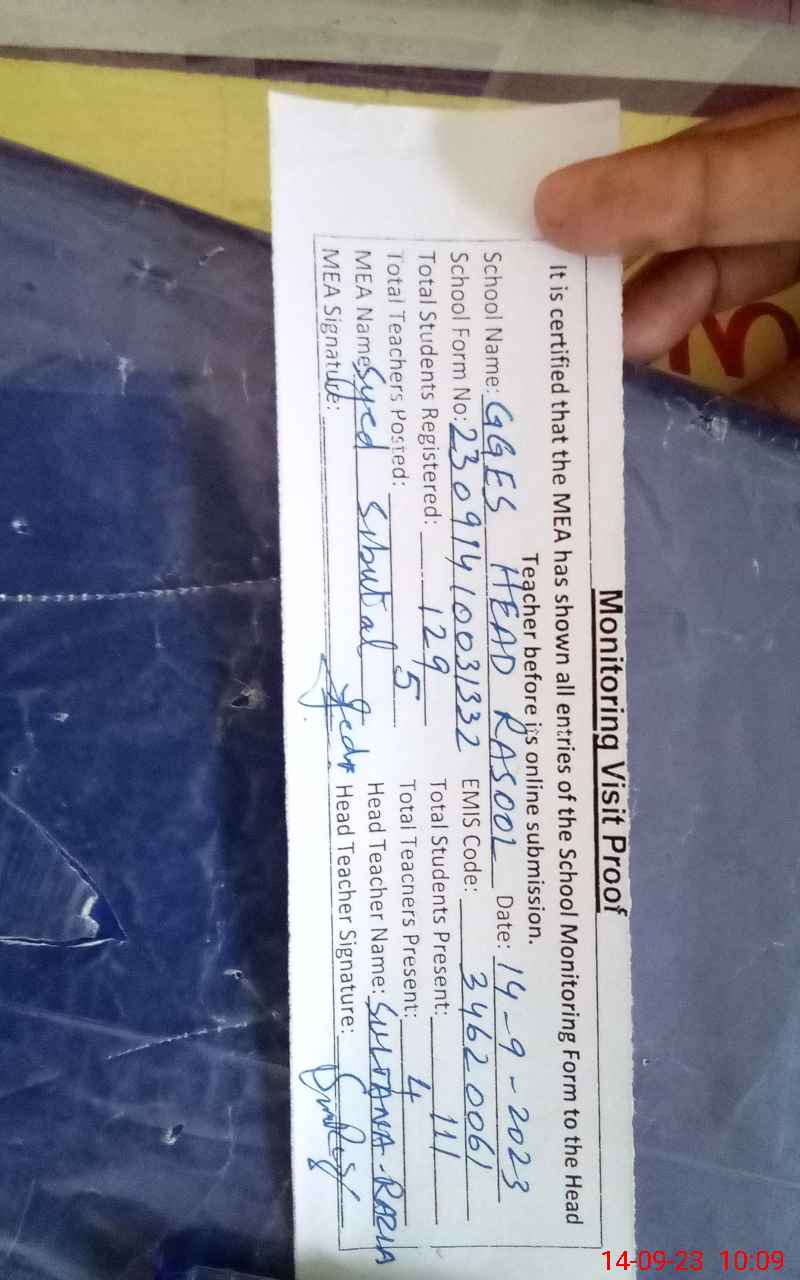 Monitoring Visit Proof
It is certified that the MEA has shown all entries of the School Monitoring Form to the Head
Teacher before its online submission.
School Name: GGES HEAD RASOOL Date: 14-9-2023
School Form No: 23091410031332 EMIS Code: 34620061
Total Students Registered: 129 Total Students Present: 111
Total Teachers Posted: 5 Total Teacners Present: 4
MEA Name: Syed Sibutal Head Teacher Name: SULTANA-RAZIA
MEA Signature: Head Teacher Signature:
14-09-23 10:09